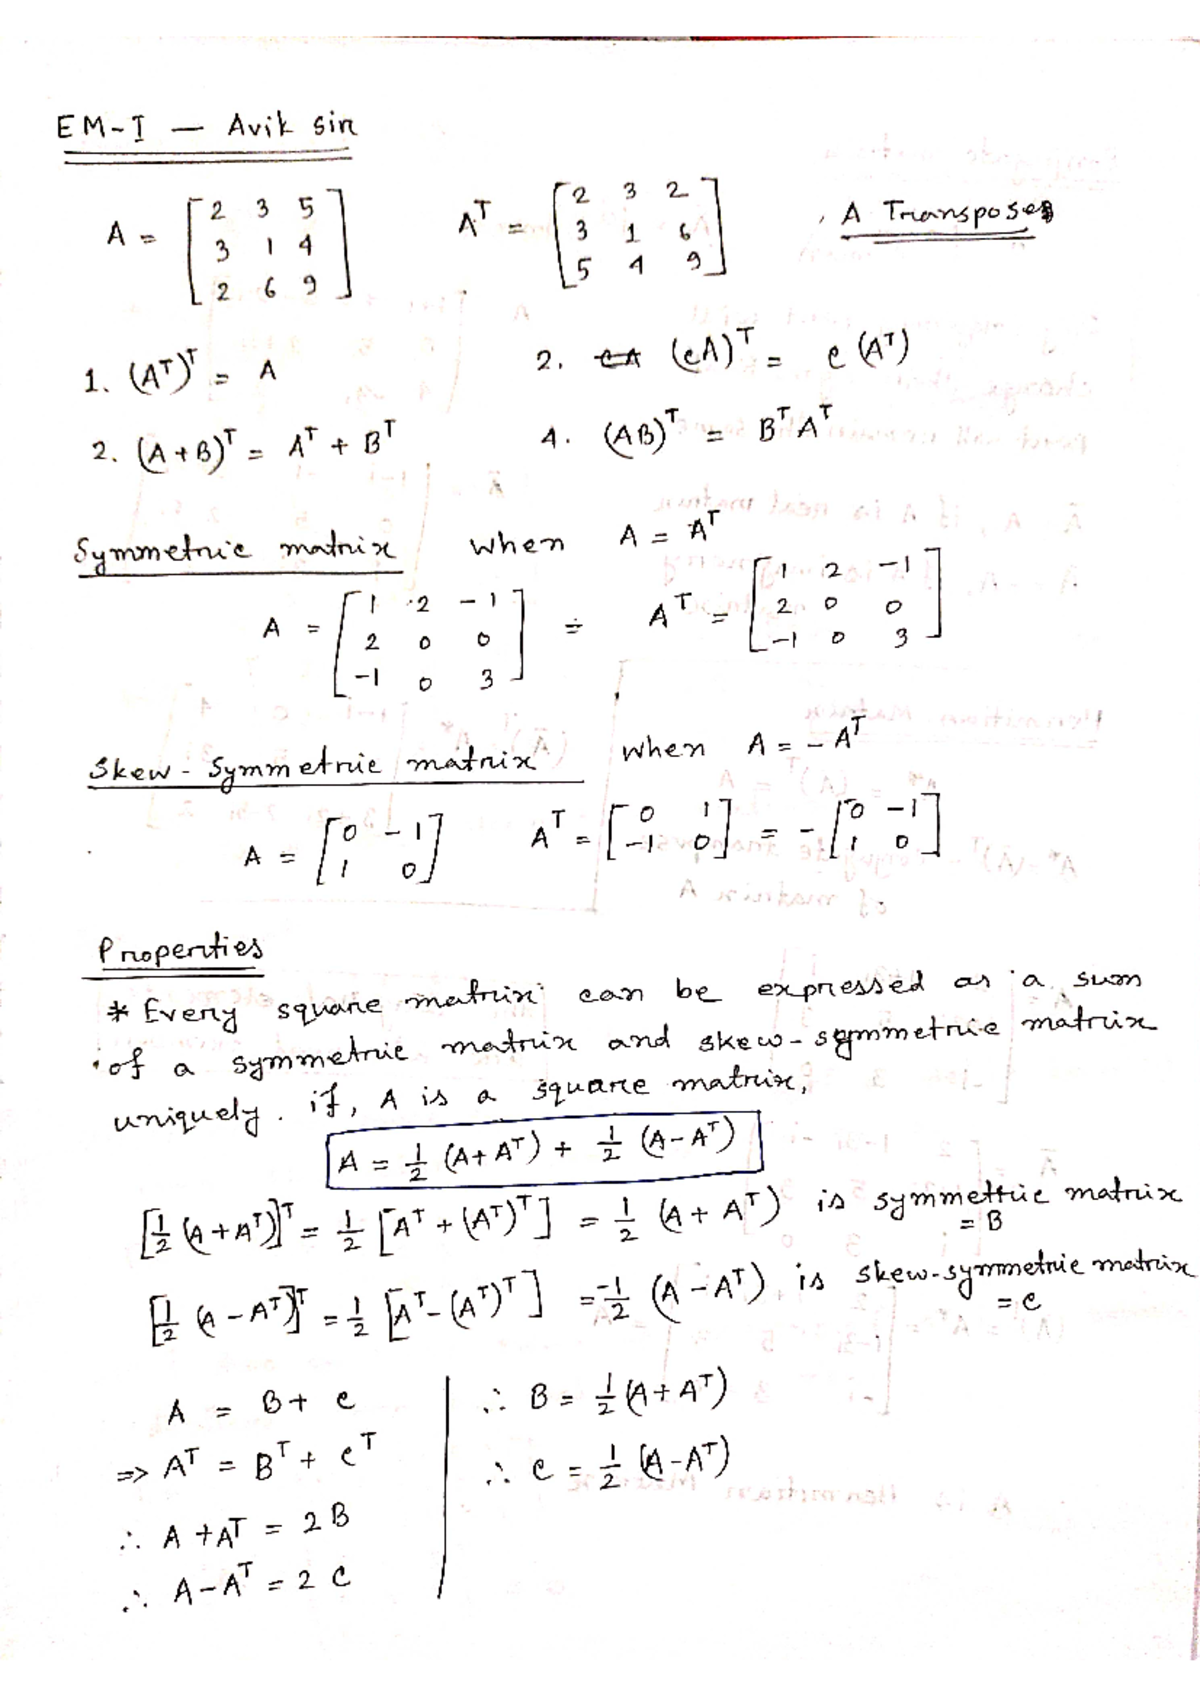 EM-I — Avik sir
A = [2 3 5; 3 1 4; 2 6 9] Aᵀ = [2 3 2; 3 1 6; 5 4 9] , A Transposes
1. (Aᵀ)ᵀ = A 2. (cA)ᵀ = c (Aᵀ)
2. (A+B)ᵀ = Aᵀ + Bᵀ 4. (AB)ᵀ = Bᵀ Aᵀ
Symmetric matrix when A = Aᵀ
A = [1 2 -1; 2 0 0; -1 0 3] = Aᵀ = [1 2 -1; 2 0 0; -1 0 3]
Skew - Symmetric matrix when A = - Aᵀ
A = [0 -1; 1 0] Aᵀ = [0 1; -1 0] = - [0 -1; 1 0]
Properties
* Every square matrix can be expressed as a sum
of a symmetric matrix and skew-symmetric matrix
uniquely. if, A is a square matrix,
A = 1/2 (A+Aᵀ) + 1/2 (A-Aᵀ)
[1/2 (A+Aᵀ)]ᵀ = 1/2 [Aᵀ + (Aᵀ)ᵀ] = 1/2 (A + Aᵀ) is symmetric matrix
= B
[1/2 (A-Aᵀ)]ᵀ = 1/2 [Aᵀ - (Aᵀ)ᵀ] = -1/2 (A - Aᵀ) is skew-symmetric matrix
= C
A = B + C
=> Aᵀ = Bᵀ + Cᵀ
∴ A + Aᵀ = 2B
∴ A - Aᵀ = 2C
∴ B = 1/2 (A + Aᵀ)
∴ C = 1/2 (A - Aᵀ)